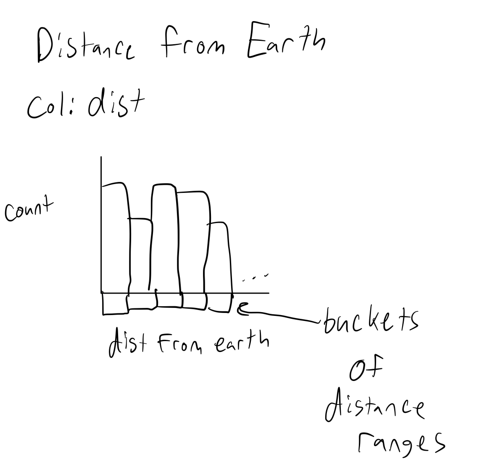 Distance from Earth
Col: dist
Count
...
dist From earth
buckets
of
distance
ranges